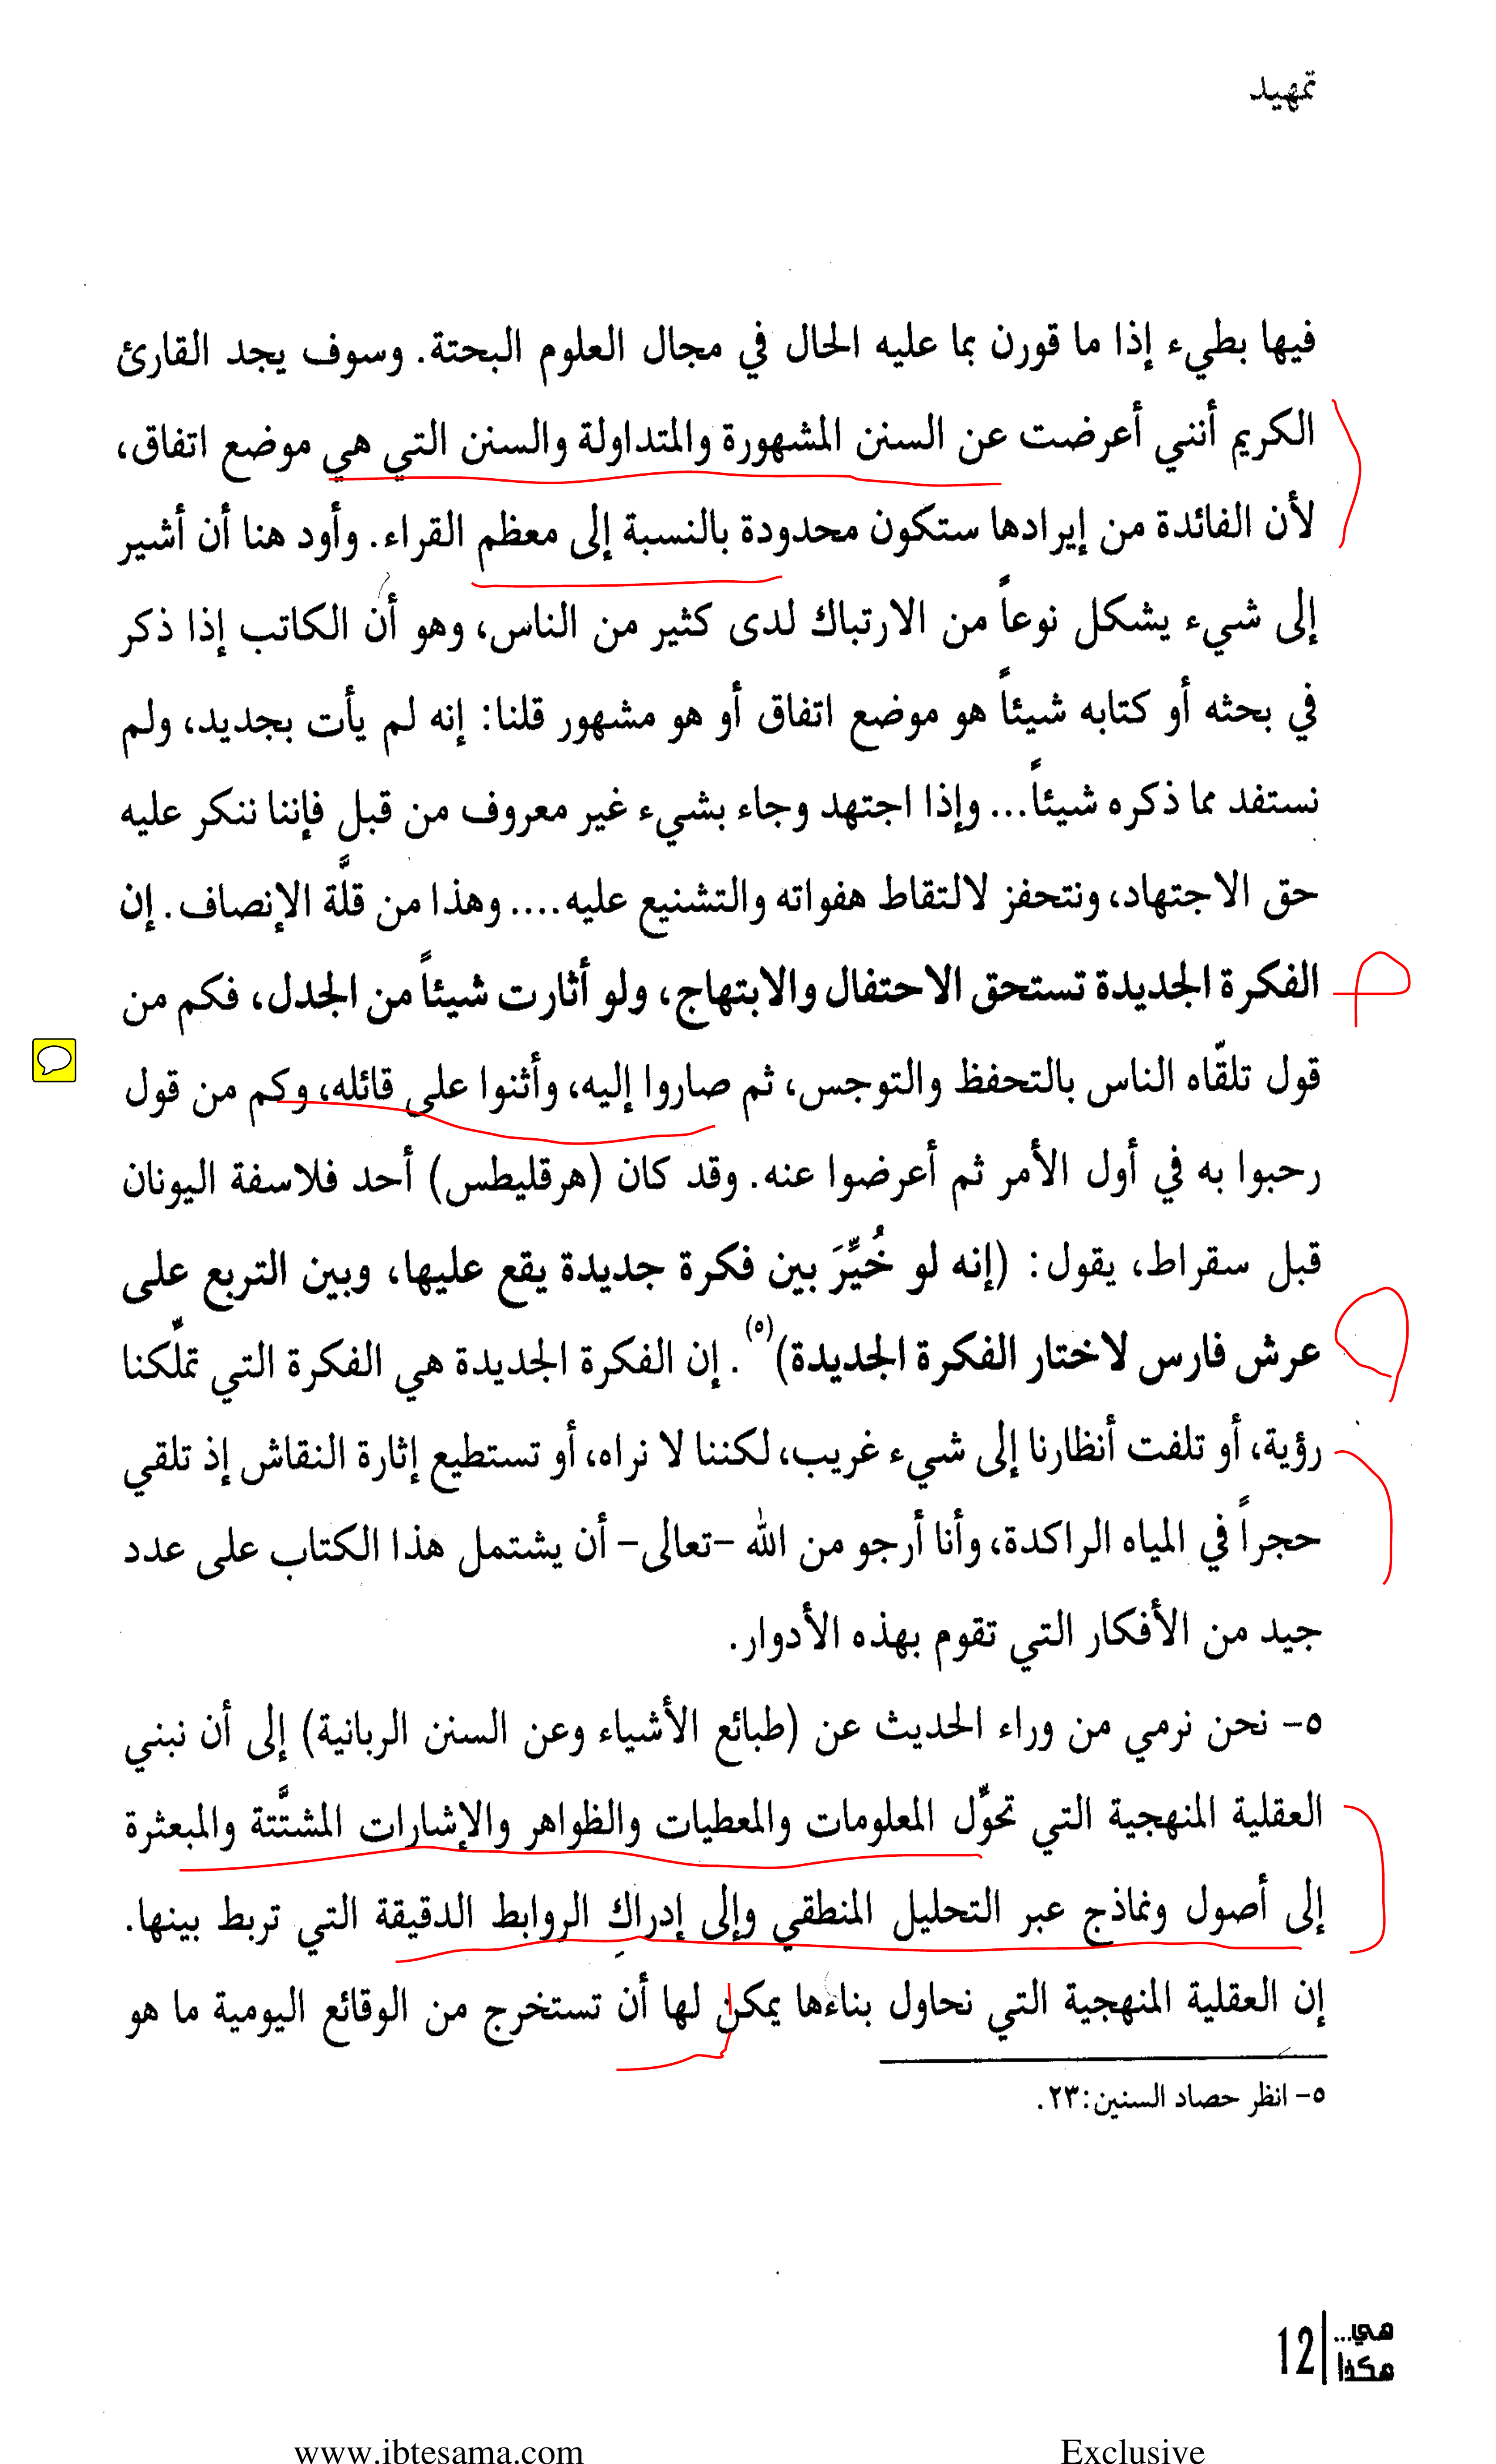 تمهيد
فيها بطيء إذا ما قورن بما عليه الحال في مجال العلوم البحتة. وسوف يجد القارئ
الكريم أنني أعرضت عن السنن المشهورة والمتداولة والسنن التي هي موضع اتفاق،
لأن الفائدة من إيرادها ستكون محدودة بالنسبة إلى معظم القراء. وأود هنا أن أشير
إلى شيء يشكل نوعاً من الارتباك لدى كثير من الناس، وهو أن الكاتب إذا ذكر
في بحثه أو كتابه شيئاً هو موضع اتفاق أو هو مشهور قلنا: إنه لم يأت بجديد، ولم
نستفد مما ذكره شيئاً... وإذا اجتهد وجاء بشيء غير معروف من قبل فإننا ننكر عليه
حق الاجتهاد، ونتحفز لالتقاط هفواته والتشنيع عليه.... وهذا من قلَّة الإنصاف. إن
الفكرة الجديدة تستحق الاحتفال والابتهاج، ولو أثارت شيئاً من الجدل، فكم من
قول تلقّاه الناس بالتحفظ والتوجس، ثم صاروا إليه، وأثنوا على قائله، وكم من قول
رحبوا به في أول الأمر ثم أعرضوا عنه. وقد كان (هرقليطس) أحد فلاسفة اليونان
قبل سقراط، يقول: (إنه لو خُيِّرَ بين فكرة جديدة يقع عليها، وبين التربع على
عرش فارس لاختار الفكرة الجديدة)(٥). إن الفكرة الجديدة هي الفكرة التي تملّكنا
رؤية، أو تلفت أنظارنا إلى شيء غريب، لكننا لا نراه، أو تستطيع إثارة النقاش إذ تلقي
حجراً في المياه الراكدة، وأنا أرجو من الله -تعالى- أن يشتمل هذا الكتاب على عدد
جيد من الأفكار التي تقوم بهذه الأدوار.
٥- نحن نرمي من وراء الحديث عن (طبائع الأشياء وعن السنن الربانية) إلى أن نبني
العقلية المنهجية التي تحوِّل المعلومات والمعطيات والظواهر والإشارات المشتَّتة والمبعثرة
إلى أصول ونماذج عبر التحليل المنطقي وإلى إدراكِ الروابط الدقيقة التي تربط بينها.
إن العقلية المنهجية التي نحاول بناءها يمكن لها أن تستخرج من الوقائع اليومية ما هو
٥- انظر حصاد السنين: ٢٣.
هي...
هكذا
12
www.ibtesama.com
Exclusive